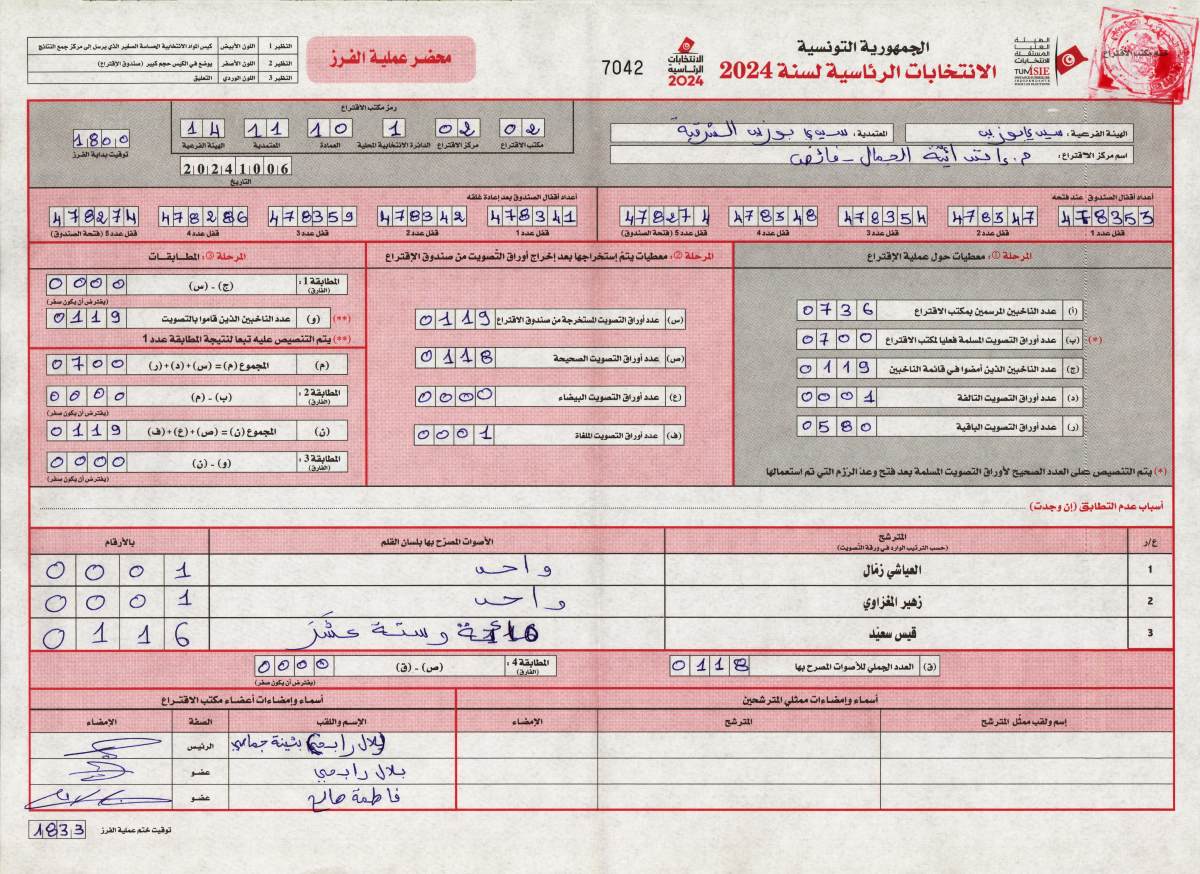 الجمهورية التونسية
الانتخابات الرئاسية لسنة 2024
الهيئة العليا المستقلة للانتخابات
TUNISIE
الانتخابات الرئاسية 2024
7042
محضر عملية الفرز
النظير 1 اللون الأبيض كيس المواد الانتخابية الحساسة الصغير الذي يرسل إلى مركز جمع النتائج
النظير 2 اللون الأصفر يوضع في الكيس حجم كبير (صندوق الإقتراع)
النظير 3 اللون الوردي التعليق
ختم مكتب الاقتراع
الهيئة الفرعية: سيدي بوزيد المعتمدية: سيدي بوزيد الشرقية
اسم مركز الاقتراع:
رمز مكتب الاقتراع
02 02 1 10 11 14
مكتب الاقتراع مركز الاقتراع الدائرة الانتخابية المحلية العمادة المعتمدية الهيئة الفرعية
20241006
التاريخ
1800
توقيت بداية الفرز
أعداد أقفال الصندوق عند فتحه
478353 478347 478354 478348 478274
قفل عدد 1 قفل عدد 2 قفل عدد 3 قفل عدد 4 قفل عدد 5 (فتحة الصندوق)
أعداد أقفال الصندوق بعد إعادة غلقه
478341 478342 478359 478286 478274
قفل عدد 1 قفل عدد 2 قفل عدد 3 قفل عدد 4 قفل عدد 5 (فتحة الصندوق)
المرحلة ①: معطيات حول عملية الإقتراع
(أ) عدد الناخبين المرسمين بمكتب الاقتراع 0736
(*) (ب) عدد أوراق التصويت المسلمة فعليا لمكتب الاقتراع 0700
(ج) عدد الناخبين الذين أمضوا في قائمة الناخبين 0119
(د) عدد أوراق التصويت التالفة 0001
(ر) عدد أوراق التصويت الباقية 0580
(*) يتم التنصيص على العدد الصحيح لأوراق التصويت المسلمة بعد فتح وعد الرزم التي تم استعمالها
المرحلة ②: معطيات يتم إستخراجها بعد إخراج أوراق التصويت من صندوق الإقتراع
(س) عدد أوراق التصويت المستخرجة من صندوق الاقتراع 0119
(ص) عدد أوراق التصويت الصحيحة 0118
(ع) عدد أوراق التصويت البيضاء 0000
(ف) عدد أوراق التصويت الملغاة 0001
المرحلة ③: المطابقات
المطابقة 1: (الفارق) (ج) - (س) 0000
(يفترض أن يكون صفر)
(**) (و) عدد الناخبين الذين قاموا بالتصويت 0119
(**) يتم التنصيص عليه تبعا لنتيجة المطابقة عدد 1
(م) المجموع (م) = (س)+(د)+(ر) 0700
المطابقة 2: (الفارق) (ب) - (م) 0000
(يفترض أن يكون صفر)
(ن) المجموع (ن) = (ص)+(ع)+(ف) 0119
المطابقة 3: (الفارق) (و) - (ن) 0000
(يفترض أن يكون صفر)
أسباب عدم التطابق (إن وجدت)
ع/ر المترشح (حسب الترتيب الوارد في ورقة التصويت) الأصوات المصرح بها بلسان القلم بالأرقام
1 العياشي زمّال واحد 0001
2 زهير المغزاوي واحد 0001
3 قيس سعيّد مائة وستة عشر 0116
(ق) العدد الجملي للأصوات المصرح بها 0118
المطابقة 4: (الفارق) (ص) - (ق) 0000
(يفترض أن يكون صفر)
أسماء وإمضاءات ممثلي المترشحين
إسم ولقب ممثل المترشح المترشح الإمضاء
أسماء وإمضاءات أعضاء مكتب الاقتراع
الإسم واللقب الصفة الإمضاء
(بلال رابحي) بثينة الرئيس
بلال رابحي عضو
فاطمة صالح عضو
توقيت ختم عملية الفرز 1833